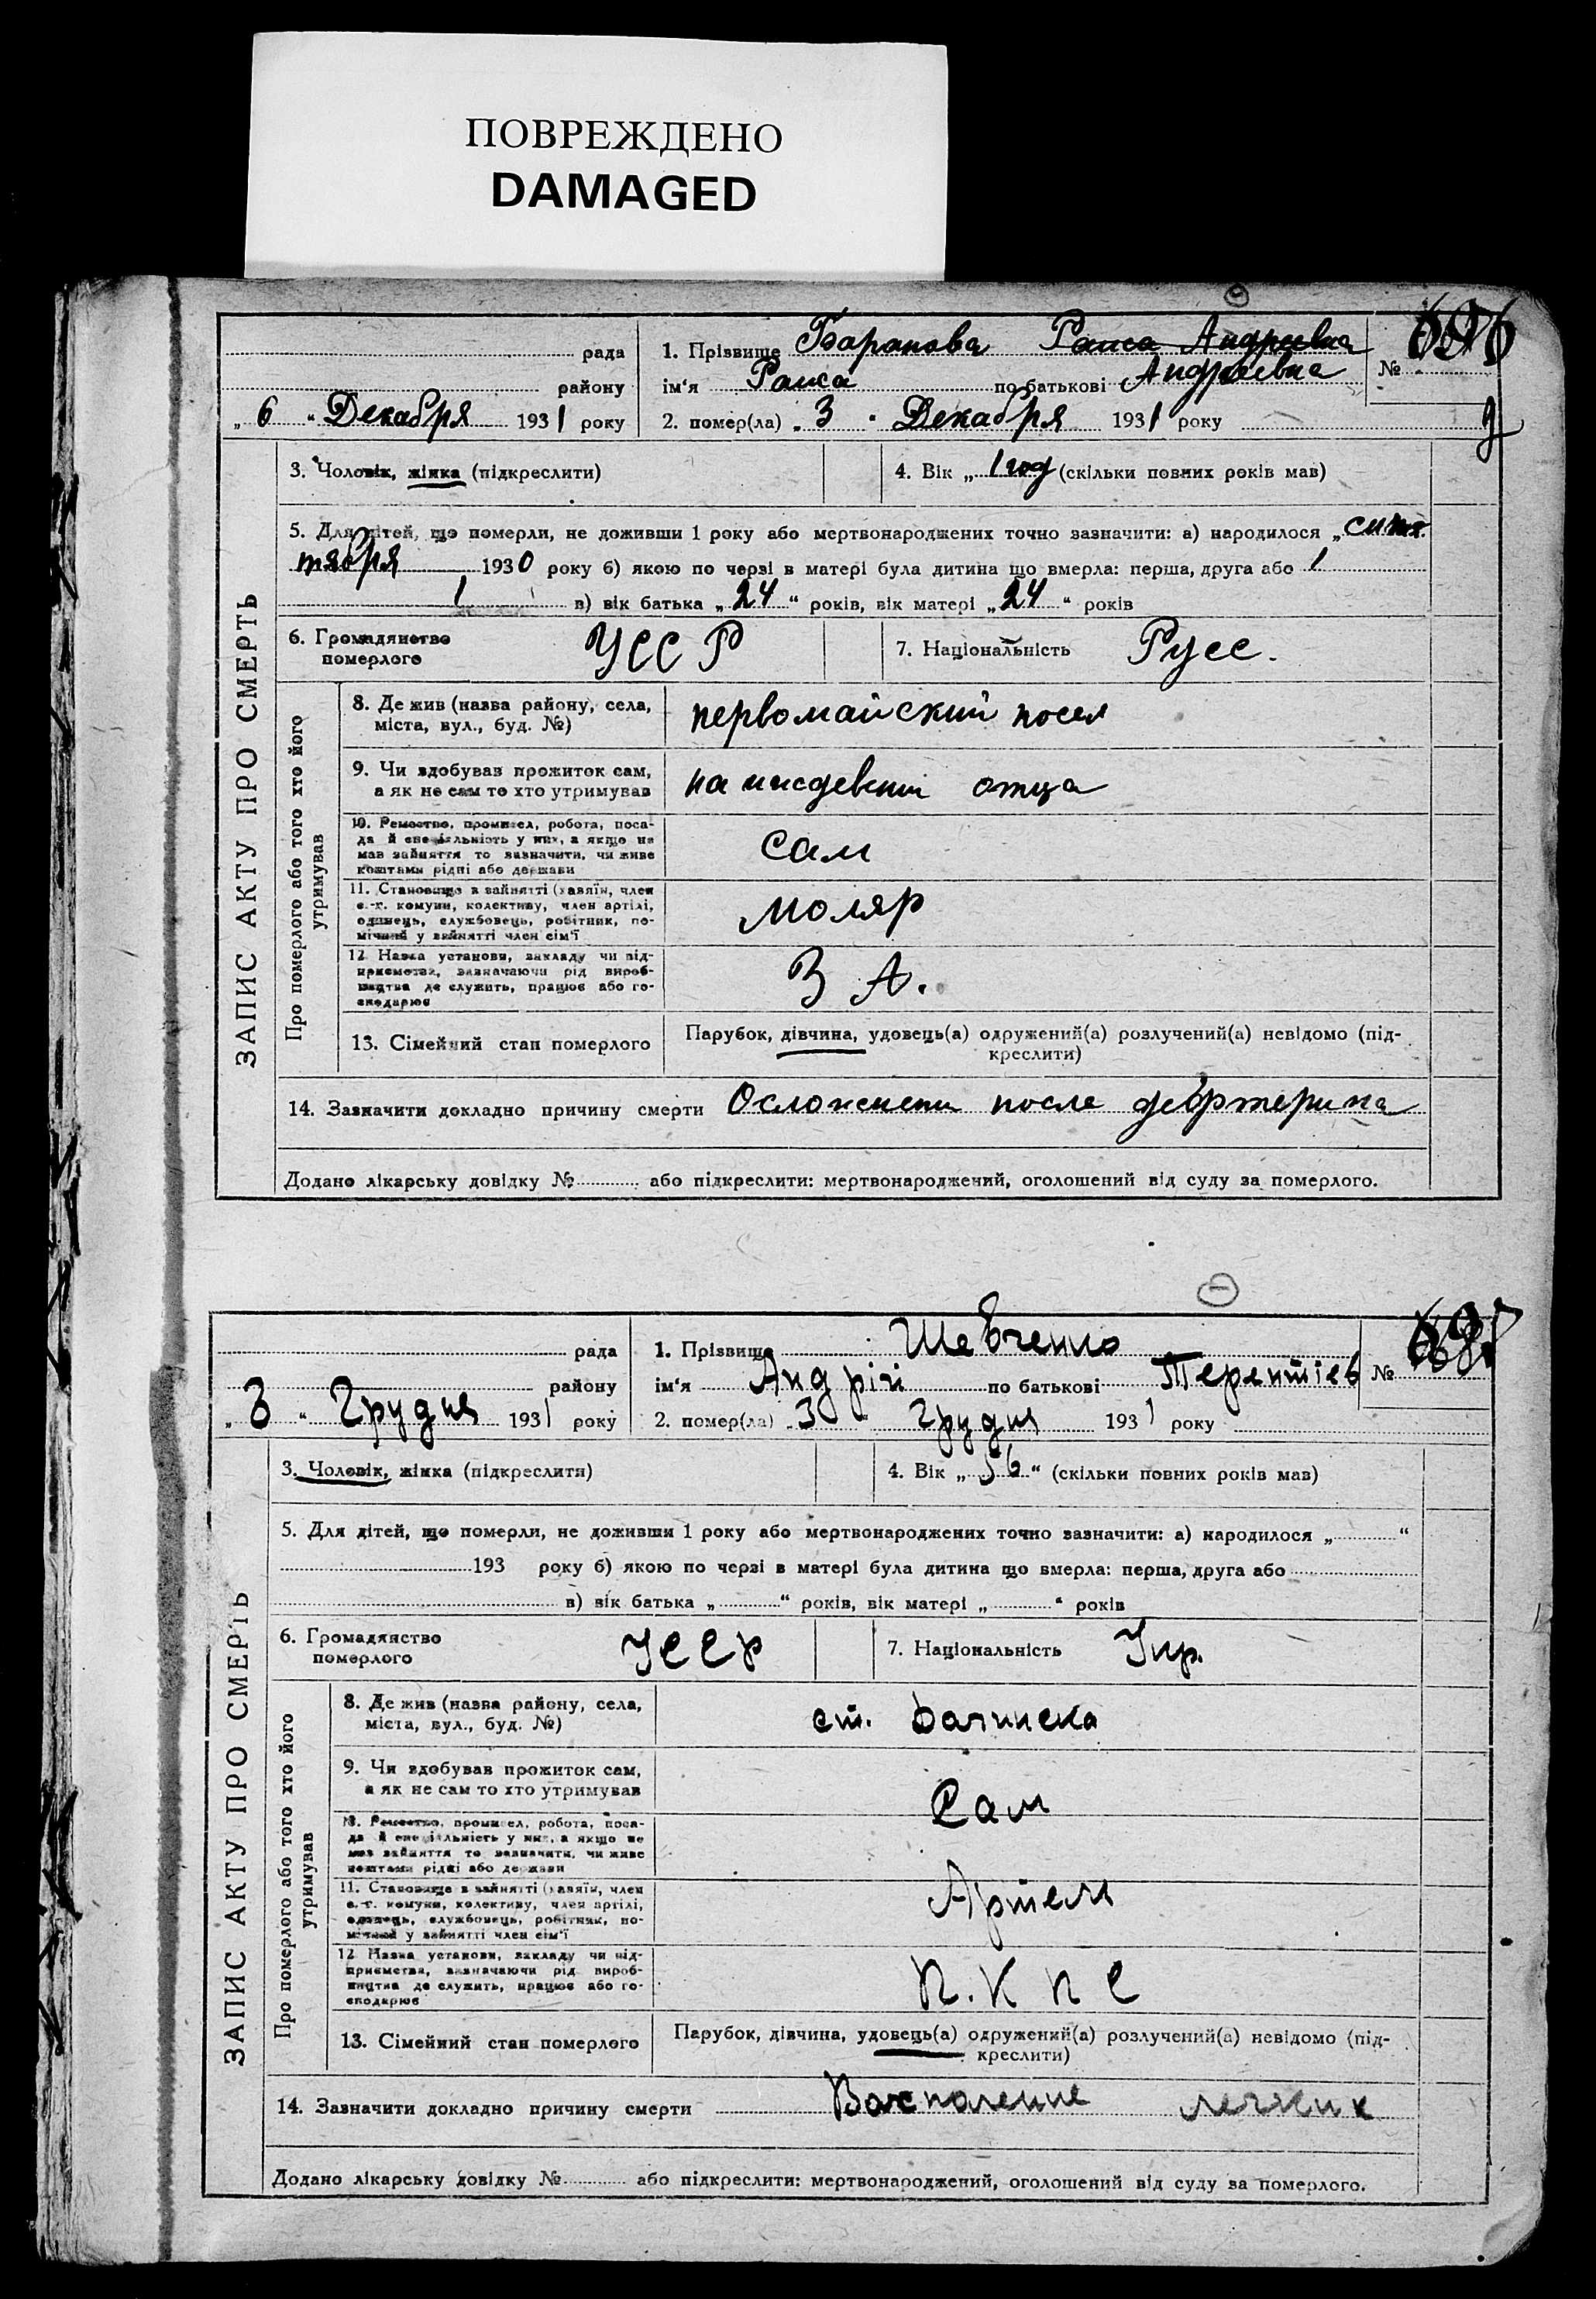 ПОВРЕЖДЕНО
DAMAGED
рада
району
„ 6 “ Декабря 1931 року
1. Прізвище Баранова Раиса Андреевна
ім‘я Раиса по батькові Андреевна
№
2. помер(ла) „ 3 “ Декабря 1931 року
ЗАПИС АКТУ ПРО СМЕРТЬ
3. Чоловік, жінка (підкреслити)
4. Вік „ 1 год (скільки повних років мав)
5. Для дітей, що померли, не доживши 1 року або мертвонароджених точно зазначити: а) народилося „
тября 1930 року б) якою по черзі в матері була дитина що вмерла: перша, друга або 1
1 в) вік батька „ 24 “ років, вік матері „ 24 “ років
6. Громадянство
померлого
УССР
7. Національність Русс.
Про померлого або того хто його
утримував
8. Де жив (назва району, села,
міста, вул., буд. №)
первомайский посел
9. Чи здобував прожиток сам,
а як не сам то хто утримував
на иждевении отца
10. Ремество, промисел, робота, поса-
да й спеціяльність у них, а якщо не
мав зайняття то зазначити, чи живе
коштами рідні або держави
сам
11. Становище в зайнятті (хазяїн, член
с.-г. комуни, колективу, член артілі,
одинець, службовець, робітник, по-
мічний у зайнятті член сім‘ї
моляр
12 Назва установи, закладу чи під-
приємства, зазначаючи рід вироб-
ництва де служить, працює або го-
сподарює
З А.
13. Сімейний стан померлого
Парубок, дівчина, удовець(а) одружений(а) розлучений(а) невідомо (під-
креслити)
14. Зазначити докладно причину смерти Осложнени после
Додано лікарську довідку № або підкреслити: мертвонароджений, оголошений від суду за померлого.
рада
району
„ 3 “ Грудня 1931 року
1. Прізвище Шевченко
ім‘я Андрій по батькові Терентіев
№
2. помер(ла) „ 3 “ Грудня 1931 року
ЗАПИС АКТУ ПРО СМЕРТЬ
3. Чоловік, жінка (підкреслити)
4. Вік „ 56 “ (скільки повних років мав)
5. Для дітей, що померли, не доживши 1 року або мертвонароджених точно зазначити: а) народилося „ “
193 року б) якою по черзі в матері була дитина що вмерла: перша, друга або
в) вік батька „ “ років, вік матері „ “ років
6. Громадянство
померлого
УССР
7. Національність Укр.
Про померлого або того хто його
утримував
8. Де жив (назва району, села,
міста, вул., буд. №)
ст.
9. Чи здобував прожиток сам,
а як не сам то хто утримував
Сам
10. Ремество, промисел, робота, поса-
да й спеціяльність у них, а якщо не
мав зайняття то зазначити, чи живе
коштами рідні або держави
11. Становище в зайнятті (хазяїн, член
с.-г. комуни, колективу, член артілі,
одинець, службовець, робітник, по-
мічний у зайнятті член сім‘ї
Артель
12 Назва установи, закладу чи під-
приємства, зазначаючи рід вироб-
ництва де служить, працює або го-
сподарює
П. К П С
13. Сімейний стан померлого
Парубок, дівчина, удовець(а) одружений(а) розлучений(а) невідомо (під-
креслити)
14. Зазначити докладно причину смерти Воспаление
Додано лікарську довідку № або підкреслити: мертвонароджений, оголошений від суду за померлого.